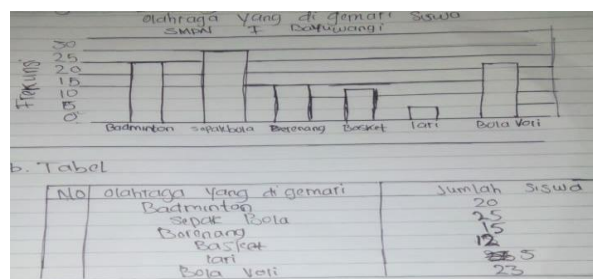 olahraga yang di gemari siswa
SMPN 7 Banyuwangi
Frekuinsi
30
25
20
15
10
5
0
Badminton sepakbola Berenang Basket lari Bola Voli
b. Tabel
No olahraga yang di gemari Jumlah siswa
Badminton 20
Sepak Bola 25
Berenang 15
Basket 12
lari 5
Bola Voli 23